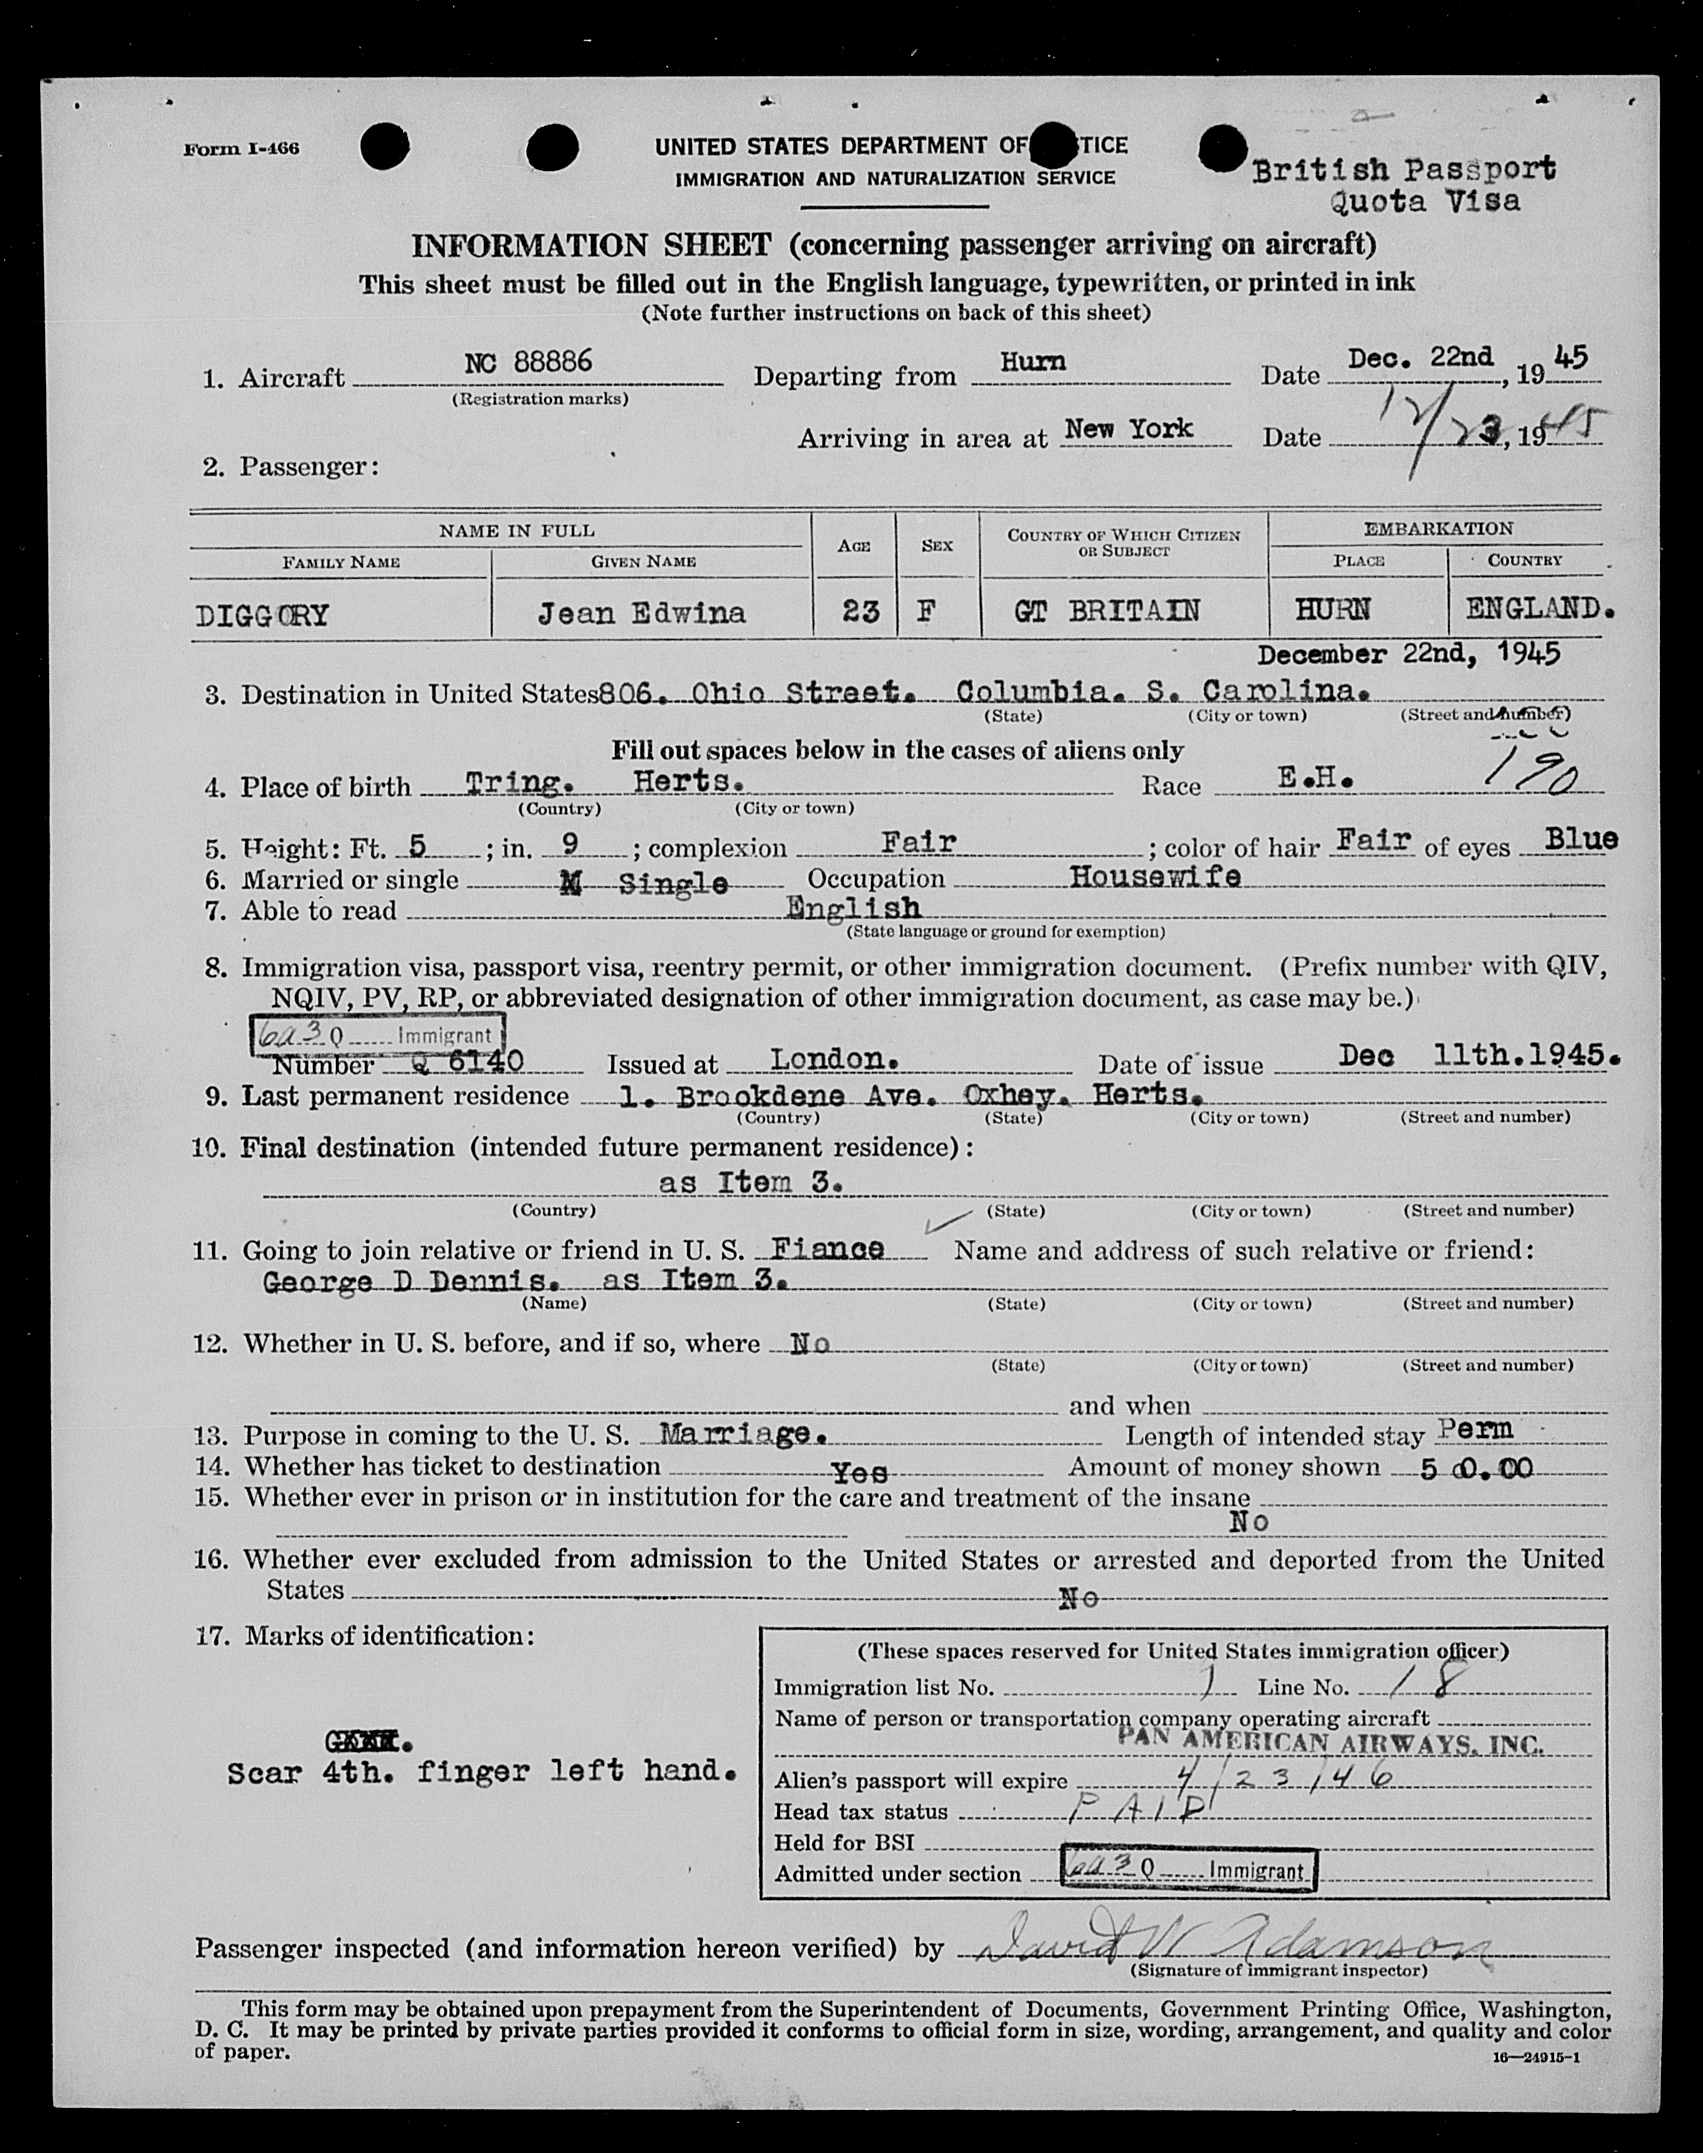 Form I-466
UNITED STATES DEPARTMENT OF TICE
IMMIGRATION AND NATURALIZATION SERVICE
British Passport
Quota Visa
INFORMATION SHEET (concerning passenger arriving on aircraft)
This sheet must be filled out in the English language, typewritten, or printed in ink
(Note further instructions on back of this sheet)
1. Aircraft NC 88886 Departing from Hurn Date Dec. 22nd, 1945
(Registration marks)
Arriving in area at New York Date 12/23, 1945
2. Passenger:
NAME IN FULL AGE SEX COUNTRY OF WHICH CITIZEN OR SUBJECT EMBARKATION
FAMILY NAME GIVEN NAME PLACE COUNTRY
DIGGORY Jean Edwina 23 F GT BRITAIN HURN ENGLAND.
December 22nd, 1945
3. Destination in United States 806. Ohio Street. Columbia. S. Carolina.
(State) (City or town) (Street and number)
Fill out spaces below in the cases of aliens only
4. Place of birth Tring. Herts. Race E.H. 190
(Country) (City or town)
5. Height: Ft. 5 ; in. 9 ; complexion Fair ; color of hair Fair of eyes Blue
6. Married or single M Single Occupation Housewife
7. Able to read English
(State language or ground for exemption)
8. Immigration visa, passport visa, reentry permit, or other immigration document. (Prefix number with QIV,
NQIV, PV, RP, or abbreviated designation of other immigration document, as case may be.)
6a3 Q Immigrant
Number Q 6140 Issued at London. Date of issue Dec 11th.1945.
9. Last permanent residence 1. Brookdene Ave. Oxhey. Herts.
(Country) (State) (City or town) (Street and number)
10. Final destination (intended future permanent residence):
as Item 3.
(Country) (State) (City or town) (Street and number)
11. Going to join relative or friend in U. S. Fiance Name and address of such relative or friend:
George D Dennis. as Item 3.
(Name) (State) (City or town) (Street and number)
12. Whether in U. S. before, and if so, where No
(State) (City or town) (Street and number)
and when
13. Purpose in coming to the U. S. Marriage. Length of intended stay Perm
14. Whether has ticket to destination Yes Amount of money shown 50.00
15. Whether ever in prison or in institution for the care and treatment of the insane
No
16. Whether ever excluded from admission to the United States or arrested and deported from the United
States No
17. Marks of identification:
Scar 4th. finger left hand.
(These spaces reserved for United States immigration officer)
Immigration list No. 1 Line No. 18
Name of person or transportation company operating aircraft
PAN AMERICAN AIRWAYS, INC.
Alien's passport will expire 4/23/46
Head tax status PAID
Held for BSI
Admitted under section 6a3 Q Immigrant
Passenger inspected (and information hereon verified) by David W Adamson
(Signature of immigrant inspector)
This form may be obtained upon prepayment from the Superintendent of Documents, Government Printing Office, Washington,
D. C. It may be printed by private parties provided it conforms to official form in size, wording, arrangement, and quality and color
of paper.
16—24915-1